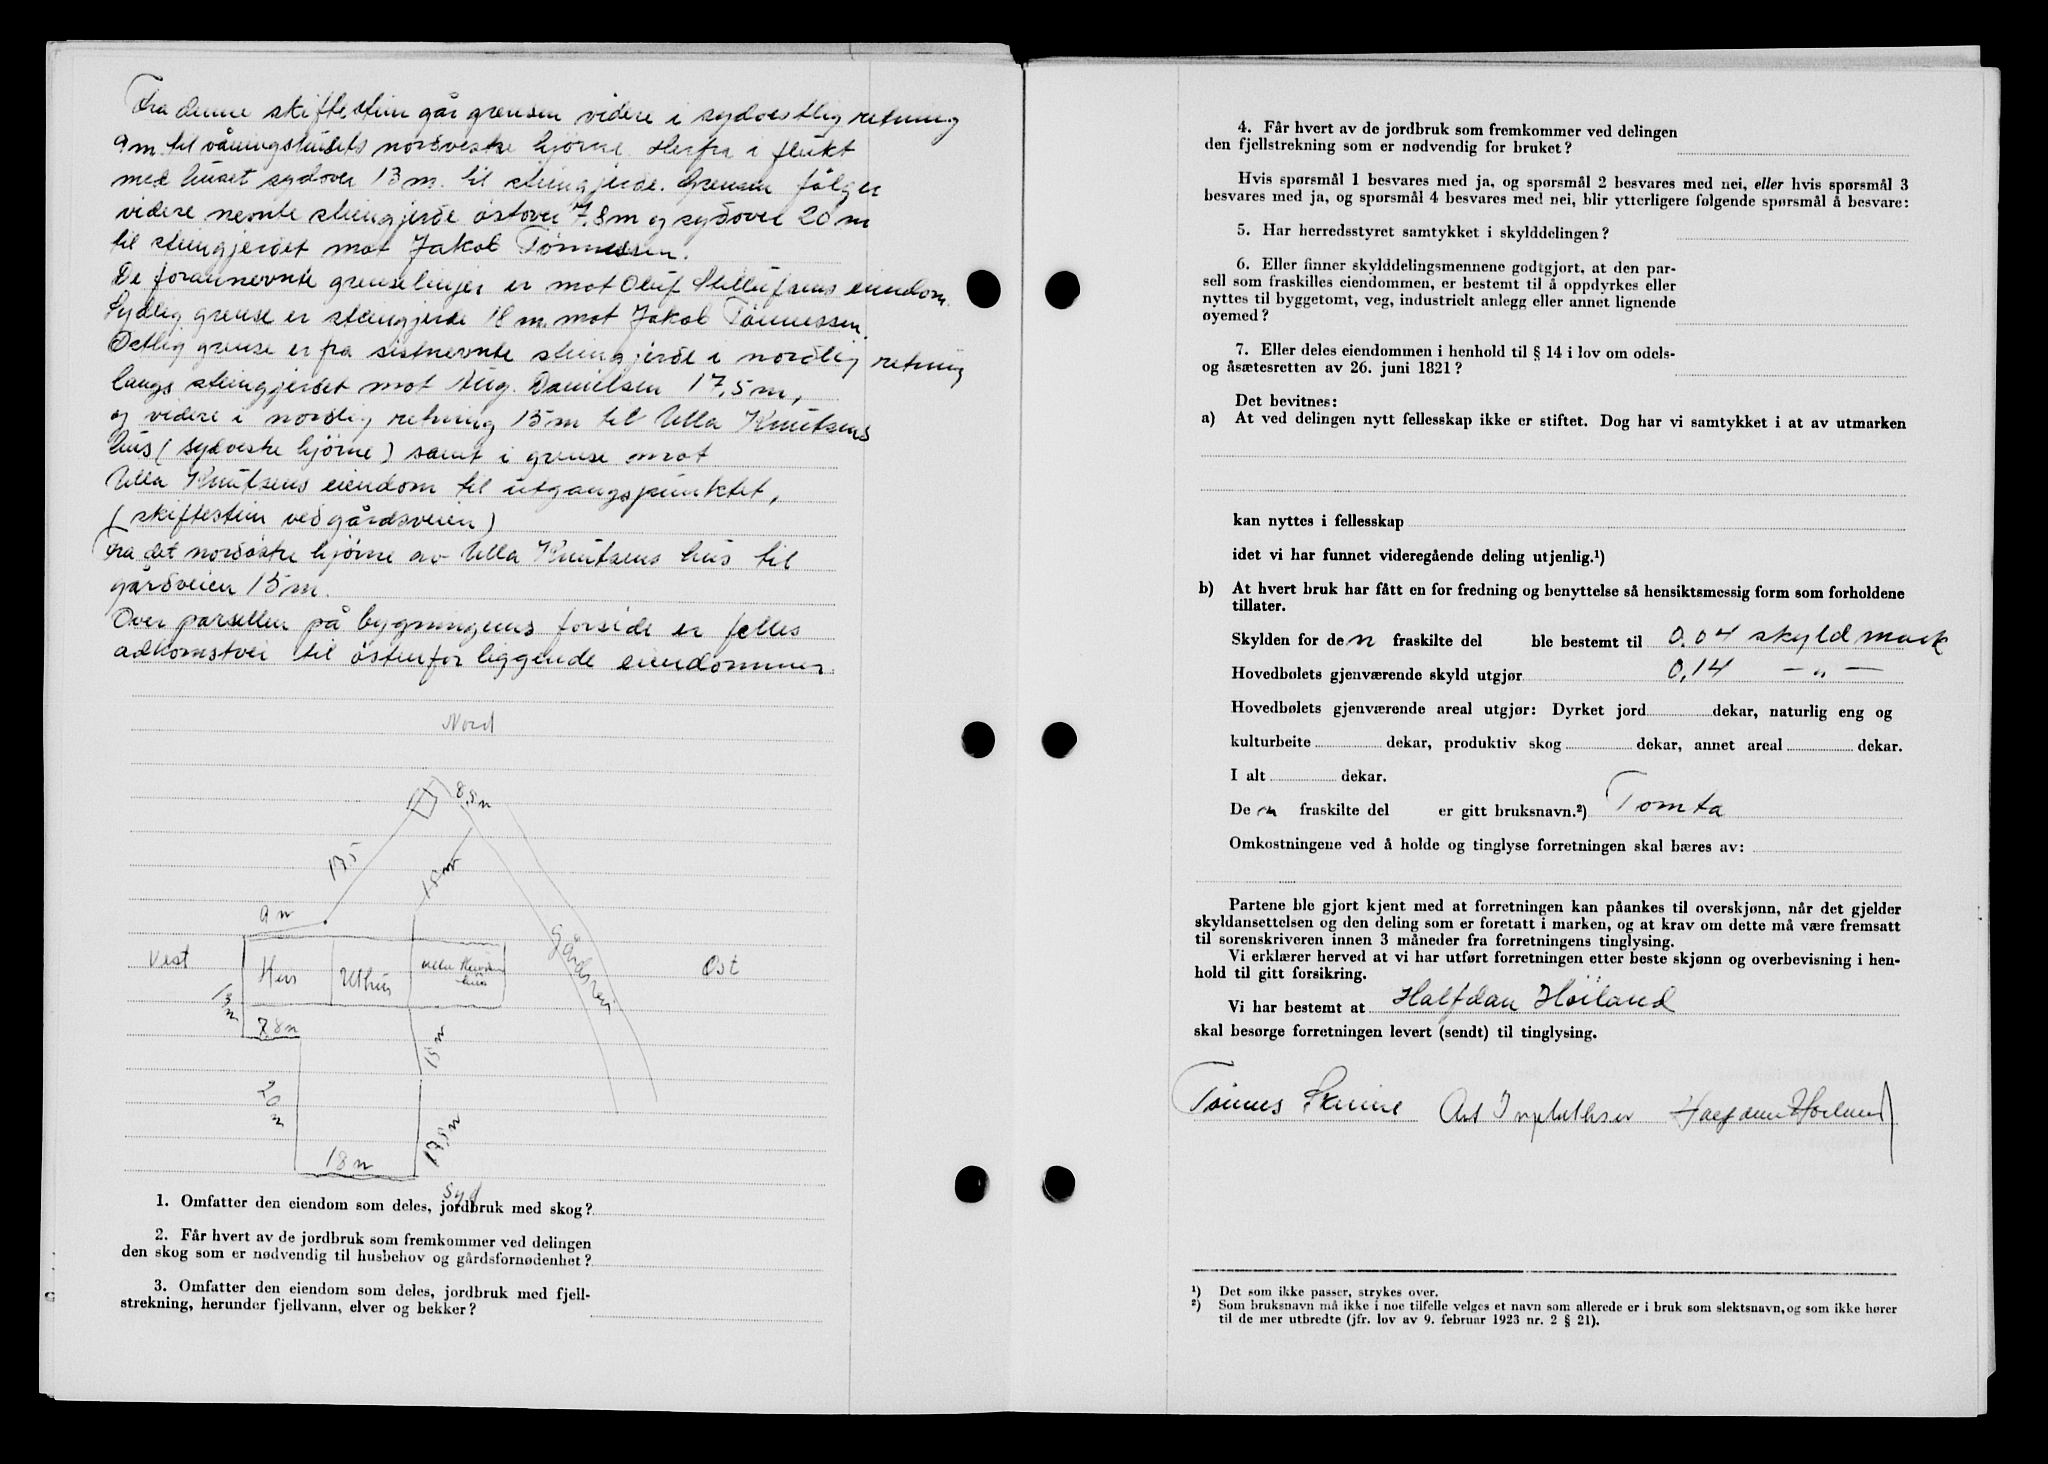 Fra denne skiftestein går grensen videre i sydvestlig retning
9 m. til våningshusets nordvestre hjörne. Herfra i flukt
med huset sydover 13 m. til steingjerde. Grensen fölger
videre nevnte steingjerde östover 7,8 m og sydover 20 m
til steingjerdet mot Jakob Tönnessen.
De forannevnte grenselinjer er mot Oluf eiendom.
Sydlig grense er steingjerde 18 m. mot Jakob Tönnessen.
Östlig grense er fra sistnevnte steingjerde i nordlig retning
langs steingjerdet mot Aug. Danielsen 17,5 m,
og videre i nordlig retning 15 m til Ulla Knutsens
hus (sydvestre hjörne) samt i grense mot
Ulla Knutsens eiendom til utgangspunktet,
(skiftestein ved gårdsveien)
Fra det nordöstre hjörne av Ulla Knutsens hus til
gårdsveien 15 m.
Over parsellen på bygningens forside er felles
adkomstvei til östenfor liggende eiendommer.
Nord
8,5 m
17,5
15 m
9 m
Vest
Hus
Uthus
Ulla Knutsens hus
Gårdsvei
Ost
13 m
7,8 m
15 m
20 m
17,5 m
18 m
Syd
1. Omfatter den eiendom som deles, jordbruk med skog?
2. Får hvert av de jordbruk som fremkommer ved delingen
den skog som er nødvendig til husbehov og gårdsfornødenhet?
3. Omfatter den eiendom som deles, jordbruk med fjell-
strekning, herunder fjellvann, elver og bekker?
4. Får hvert av de jordbruk som fremkommer ved delingen
den fjellstrekning som er nødvendig for bruket?
Hvis spørsmål 1 besvares med ja, og spørsmål 2 besvares med nei, eller hvis spørsmål 3
besvares med ja, og spørsmål 4 besvares med nei, blir ytterligere følgende spørsmål å besvare:
5. Har herredsstyret samtykket i skylddelingen?
6. Eller finner skylddelingsmennene godtgjort, at den par-
sell som fraskilles eiendommen, er bestemt til å oppdyrkes eller
nyttes til byggetomt, veg, industrielt anlegg eller annet lignende
øyemed?
7. Eller deles eiendommen i henhold til § 14 i lov om odels-
og åsætesretten av 26. juni 1821?
Det bevitnes:
a) At ved delingen nytt fellesskap ikke er stiftet. Dog har vi samtykket i at av utmarken
kan nyttes i fellesskap
idet vi har funnet videregående deling utjenlig.¹)
b) At hvert bruk har fått en for fredning og benyttelse så hensiktsmessig form som forholdene
tillater.
Skylden for den fraskilte del ble bestemt til 0.04 skyld mark
Hovedbølets gjenværende skyld utgjør 0,14 — „ —
Hovedbølets gjenværende areal utgjør: Dyrket jord dekar, naturlig eng og
kulturbeite dekar, produktiv skog dekar, annet areal dekar.
I alt dekar.
Den fraskilte del er gitt bruksnavn.²) Tomta
Omkostningene ved å holde og tinglyse forretningen skal bæres av:
Partene ble gjort kjent med at forretningen kan påankes til overskjønn, når det gjelder
skyldansettelsen og den deling som er foretatt i marken, og at krav om dette må være fremsatt
til sorenskriveren innen 3 måneder fra forretningens tinglysing.
Vi erklærer herved at vi har utført forretningen etter beste skjønn og overbevisning i hen-
hold til gitt forsikring.
Vi har bestemt at Halfdan Höiland
skal besørge forretningen levert (sendt) til tinglysing.
Tönnes Halfdan Höiland
¹) Det som ikke passer, strykes over.
²) Som bruksnavn må ikke i noe tilfelle velges et navn som allerede er i bruk som slektsnavn, og som ikke hører
til de mer utbredte (jfr. lov av 9. februar 1923 nr. 2 § 21).